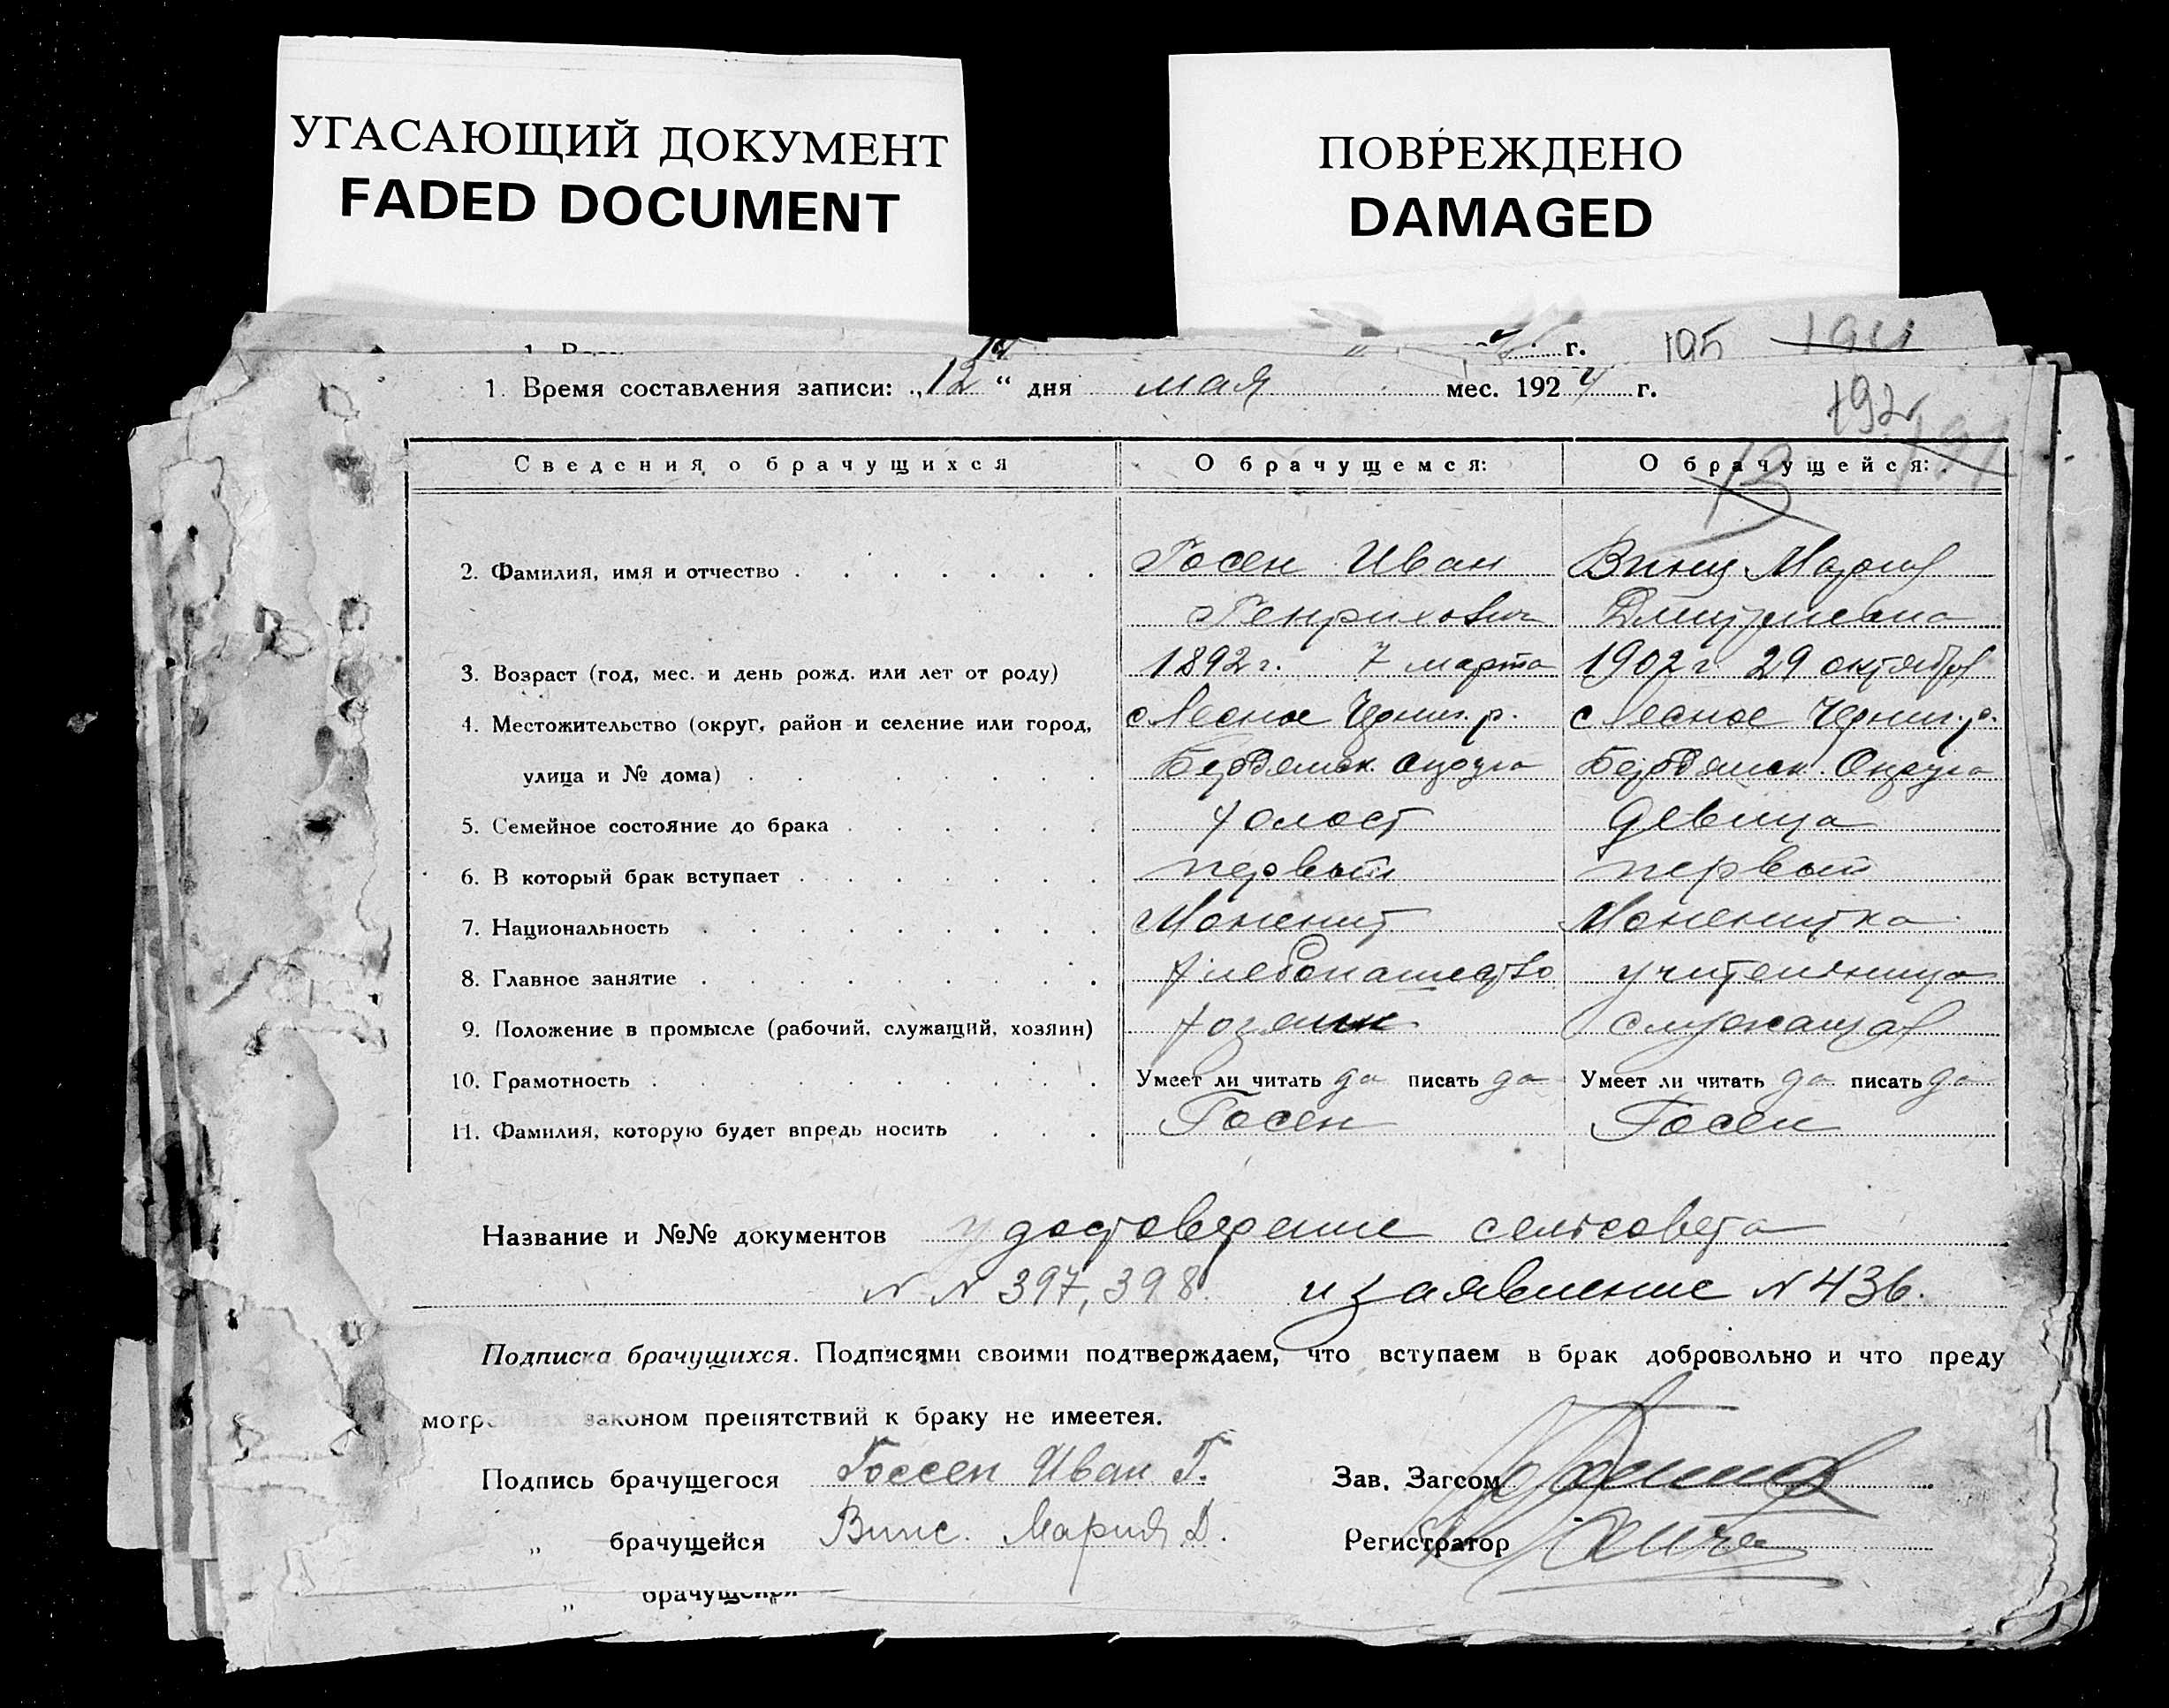 УГАСАЮЩИЙ ДОКУМЕНТ
FADED DOCUMENT
ПОВРЕЖДЕНО
DAMAGED
г. 195 194
1. Время составления записи: „12“ дня мая мес. 1924 г.
192
191
Сведения о брачущихся О брачущемся: О брачущейся:
13
2. Фамилия, имя и отчество Госен Иван Винц Мария
Генрихович Дмитриевна
3. Возраст (год, мес. и день рожд. или лет от роду) 1892 г. 7 марта 1902 г 29 октября
4. Местожительство (округ, район и селение или город, с Лесное Черниг. р. с Лесное Черниг. р.
улица и № дома) Бердянск. Округа Бердянск. Округа
5. Семейное состояние до брака холост девица
6. В который брак вступает первый первый
7. Национальность Моненит Мененитка
8. Главное занятие хлебопашество учительница
9. Положение в промысле (рабочий, служащий, хозяин) хозяин служащая
10. Грамотность Умеет ли читать да писать да Умеет ли читать да писать да
11. Фамилия, которую будет впредь носить Госен Госен
Название и №№ документов удостоверение сельсовета
N N 397, 398. и заявление N 436.
Подписка брачущихся. Подписями своими подтверждаем, что вступаем в брак добровольно и что преду
законом препятствий к браку не имеется.
Подпись брачущегося Госсен Иван Г. Зав. Загсом
„ брачущейся Винс. Мария Д. Регистратор
„ брачущейся